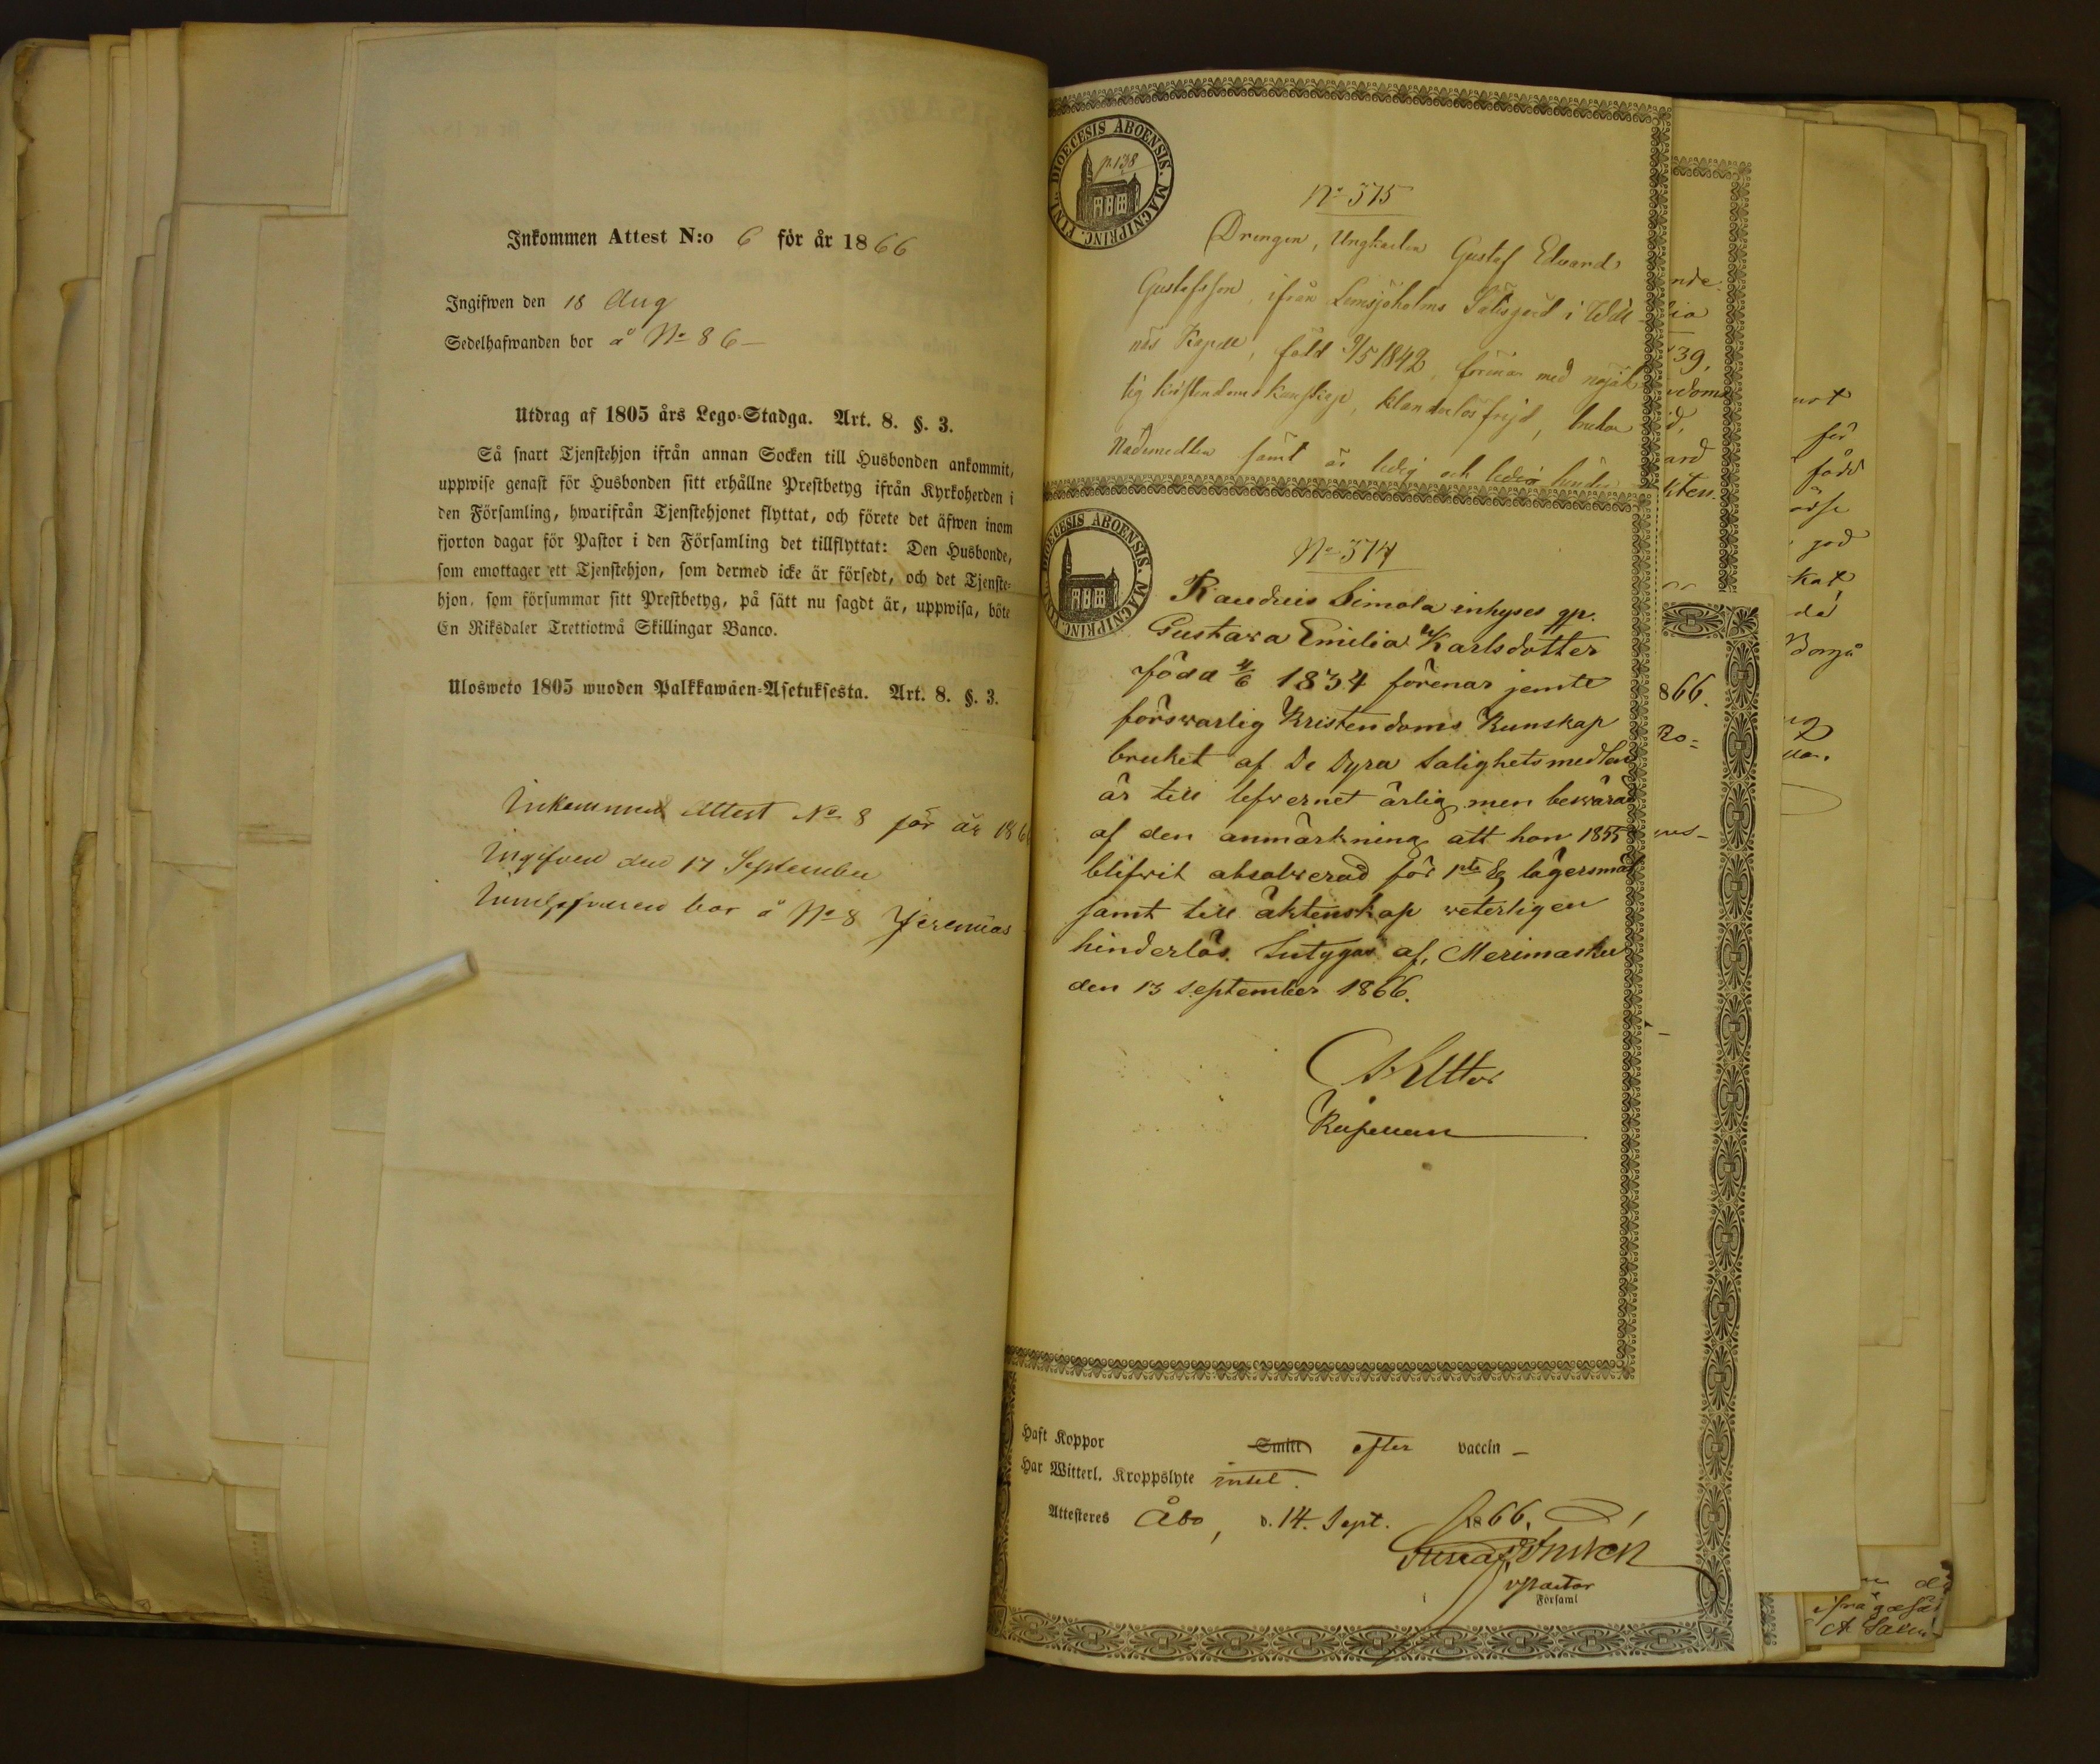 Inkommen Attest N:o 6 för år 1866
Ingifwen den 18 Aug
Sedelhafwanden bor å No 86
Utdrag af 1805 års Lego-Stadga. Art. 8. §. 3.
Så snart Tjenstehjon ifrån annan Socken till Husbonden ankommit,
uppwise genast för Husbonden sitt erhållne Prestbetyg ifrån Kyrkoherden i
den Församling, hwarifrån Tjenstehjonet flyttat, och förete det äfwen inom
fjorton dagar för Pastor i den Församling det tillflyttat: Den Husbonde,
som emottager ett Tjenstehjon, som dermed icke är försedt, och det Tjenste-
hjon, som försummar sitt Prestbetyg, på sätt nu sagdt är, uppwisa, böte
En Riksdaler Trettiotwå Skillingar Banco.
Ulosweto 1805 wuoden Palkkawäen-Asetuksesta. Art. 8. §. 3.
Inkommen Attest No 8 för år 186
Ingifven den 17 September
bor å No 8 Jeremias
DIOECESIS ABOENSIS. MAGNIPRINC. FINL.
p. 138
No 375
Drengen, Ungkarlen Gustaf Edvard
Gustafsson, ifrån Lemsjöholms Säterigård i Will-
näs Kapell, född 9/5 1842, förenar med nöjak-
tig kristendoms kunskap, klanderlös frejd, brukar
Nådemedlen samt är ledig och
DIOECESIS ABOENSIS. MAGNIPRINC. FINL.
No 374
Raudais Simola inhyses qp.
Gustava Emilia Karlsdotter
föda 4/6 1834 förenar jemte
förswarlig Kristendoms Kunskap
bruket af De Dyra Salighetsmedlen
är till lefvernet ärlig men beswärad
af den anmärkning att hon 1855
blifvit absolverad för 1sta lägersmål
samt till äktenskap veterligen
hinderlös. Intygar af, Merimasku
den 13 September 1866.
Kapellan
Haft Koppor Smitt efter vaccin
Har Witterl. Kroppslyte intet.
Attesteres Åbo, d. 14. Sept. 1866.
v pastor
Församl
nde.
39,
ard
866.
Ro=
för
född
god
Borgå